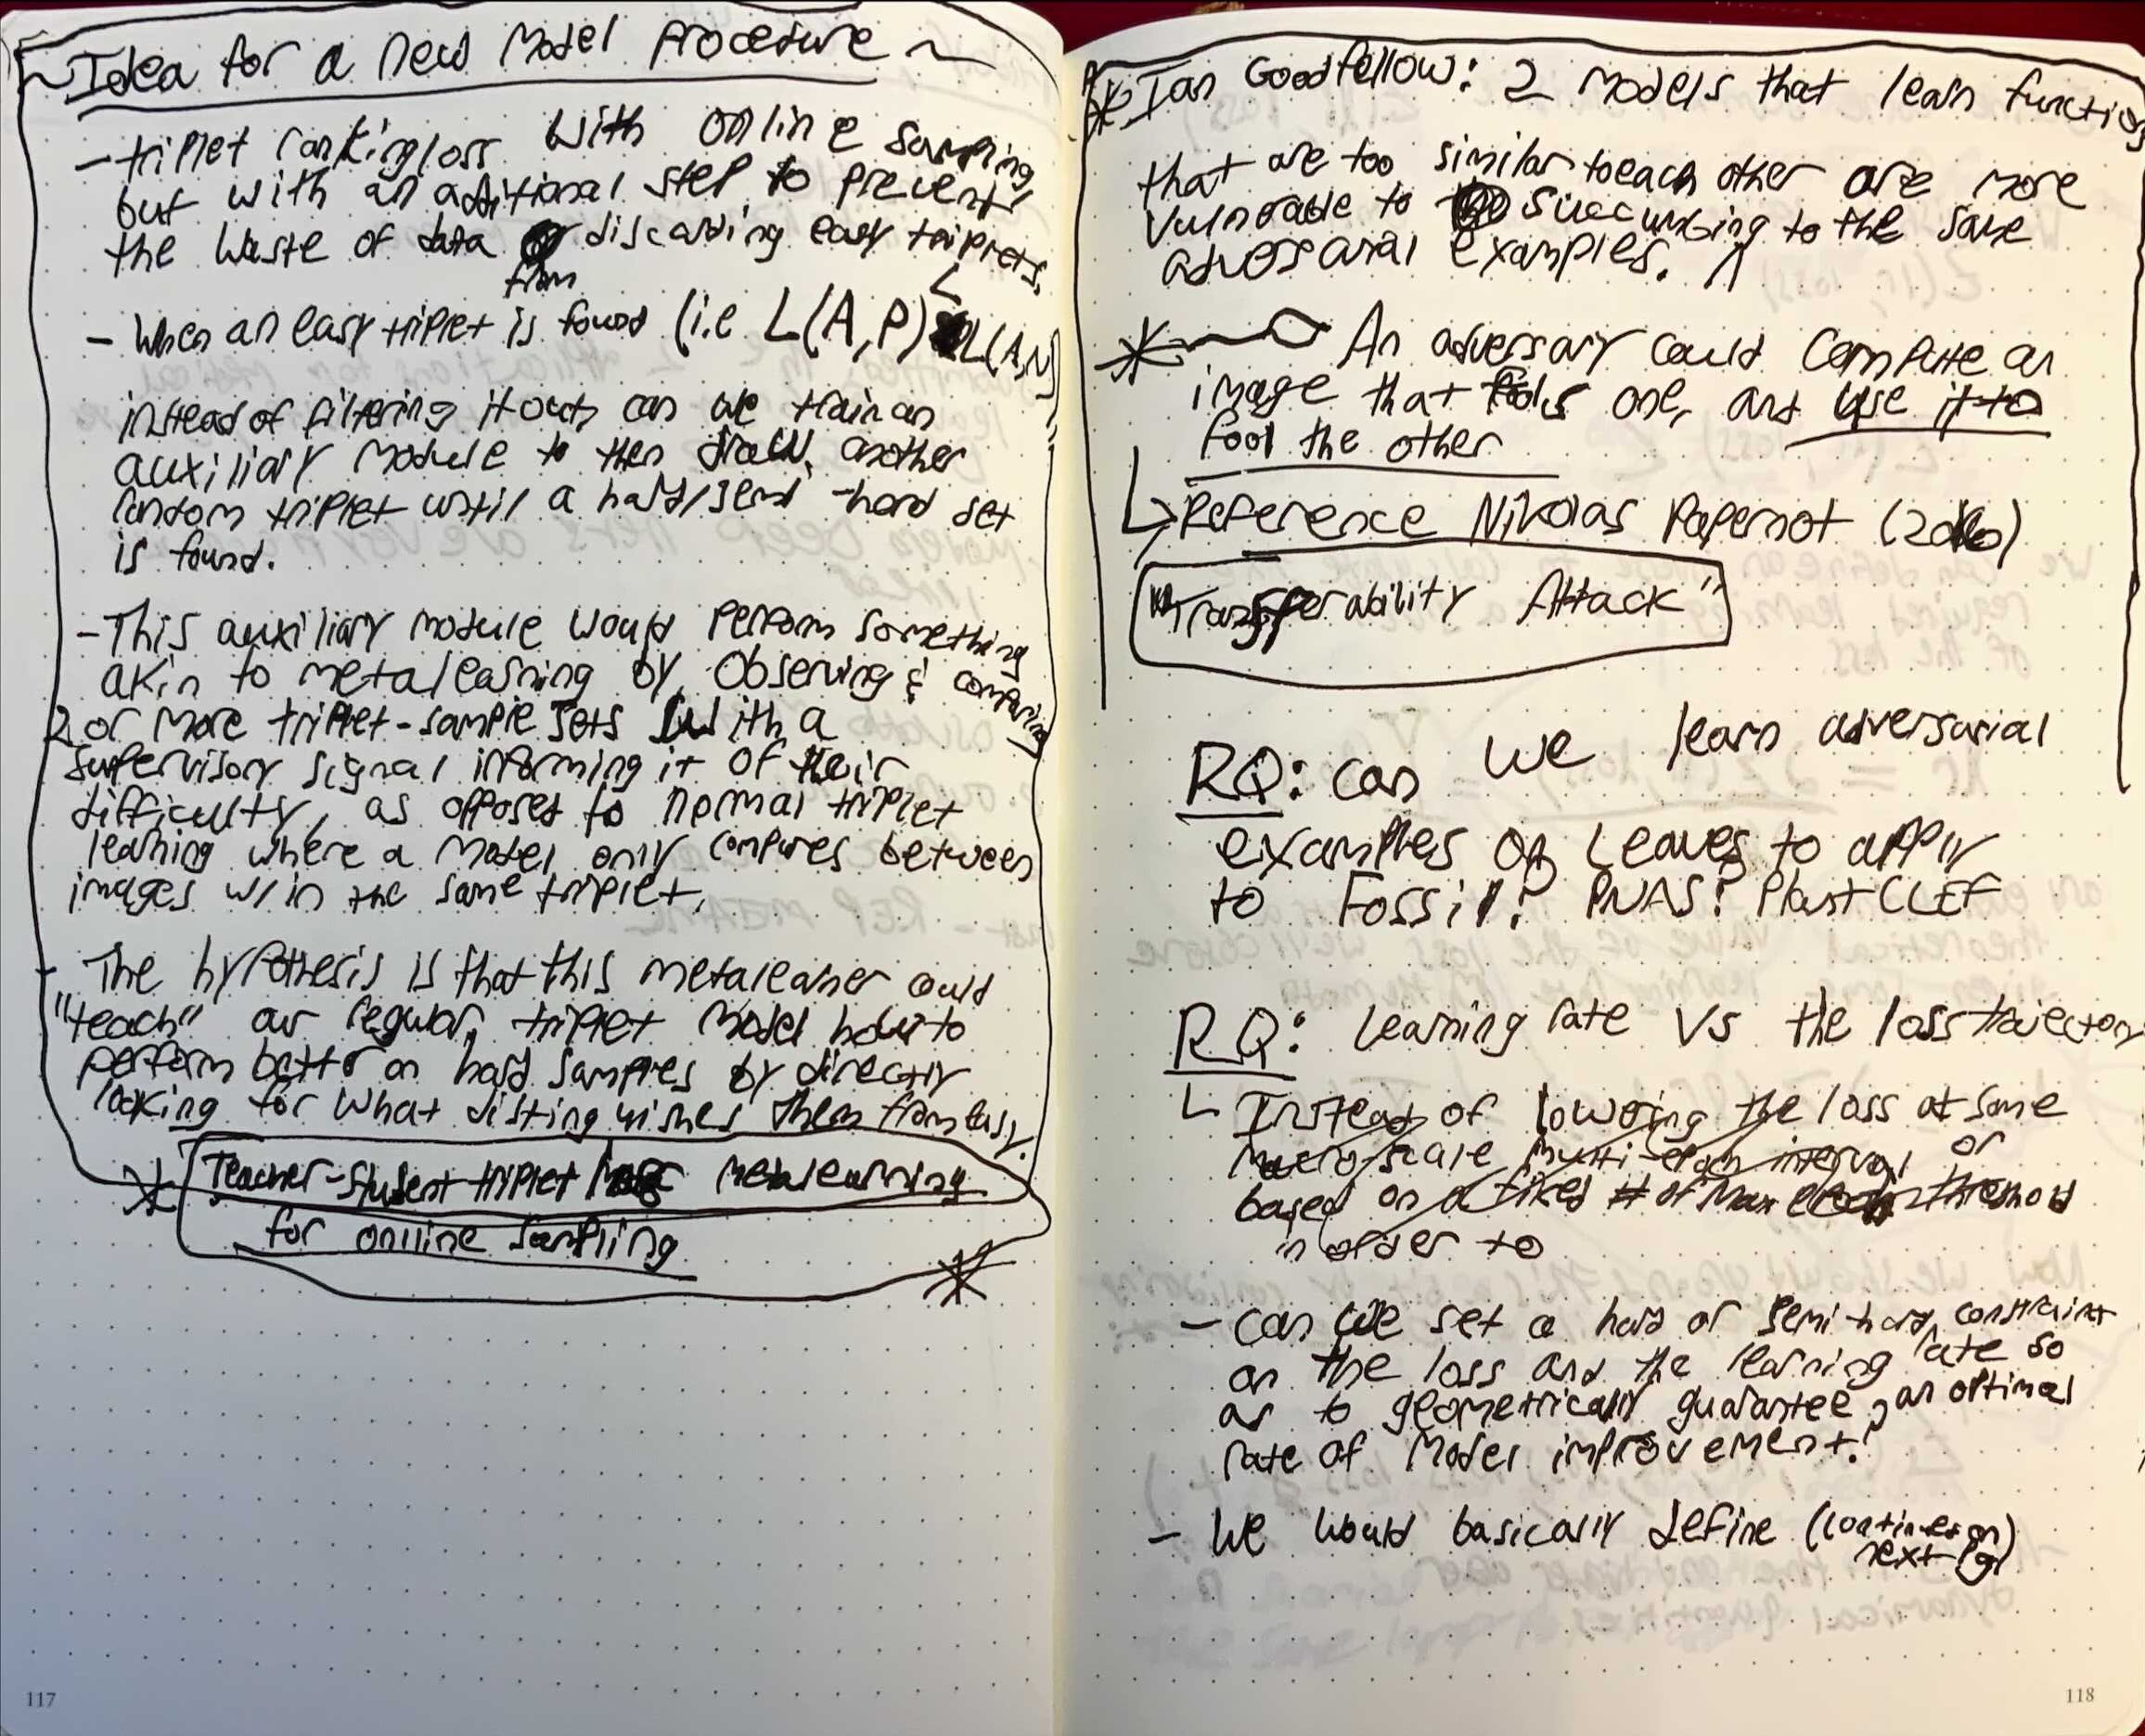 ~ Idea for a new Model Procedure ~
- triplet ranking loss with online sampling,
but with an additional step to prevent
the waste of data from discarding easy triplets.
- When an easy triplet is found (i.e L(A,P) < L(A,N)
instead of filtering it out, can we train an
auxiliary module to then draw another
random triplet until a hard/semi-hard set
is found.
- This auxiliary module would perform something
akin to metalearning by observing & comparing
2 or more triplet-sample sets with a
supervisory signal informing it of their
difficulty, as opposed to normal triplet
learning where a model only compares between
images w/in the same triplet.
- The hypothesis is that this metalearner could
"teach" our regular triplet model how to
perform better on hard samples by directly
looking for what distinguishes them from easy.
* Teacher-Student triplet metalearning
for online sampling *
117
* Ian Goodfellow: 2 models that learn functions
that are too similar to each other are more
vulnerable to succumbing to the same
adversarial examples.
* An adversary could compute an
image that fools one, and use it to
fool the other
↳ Reference Nikolas Papernot (2016)
"Transferability Attack"
RQ: can we learn adversarial
examples of Leaves to apply
to Fossil? PNAS? PlantCLEF
RQ: Learning rate vs the loss trajectory
↳ Instead of lowering the loss at some
macro-scale multi-epoch interval or
based on a fixed # of max epochs threshold
in order to
- can we set a hard or semi-hard constraint
on the loss and the learning rate so
as to geometrically guarantee an optimal
rate of model improvement?
- We would basically define (continues on
next pg)
118